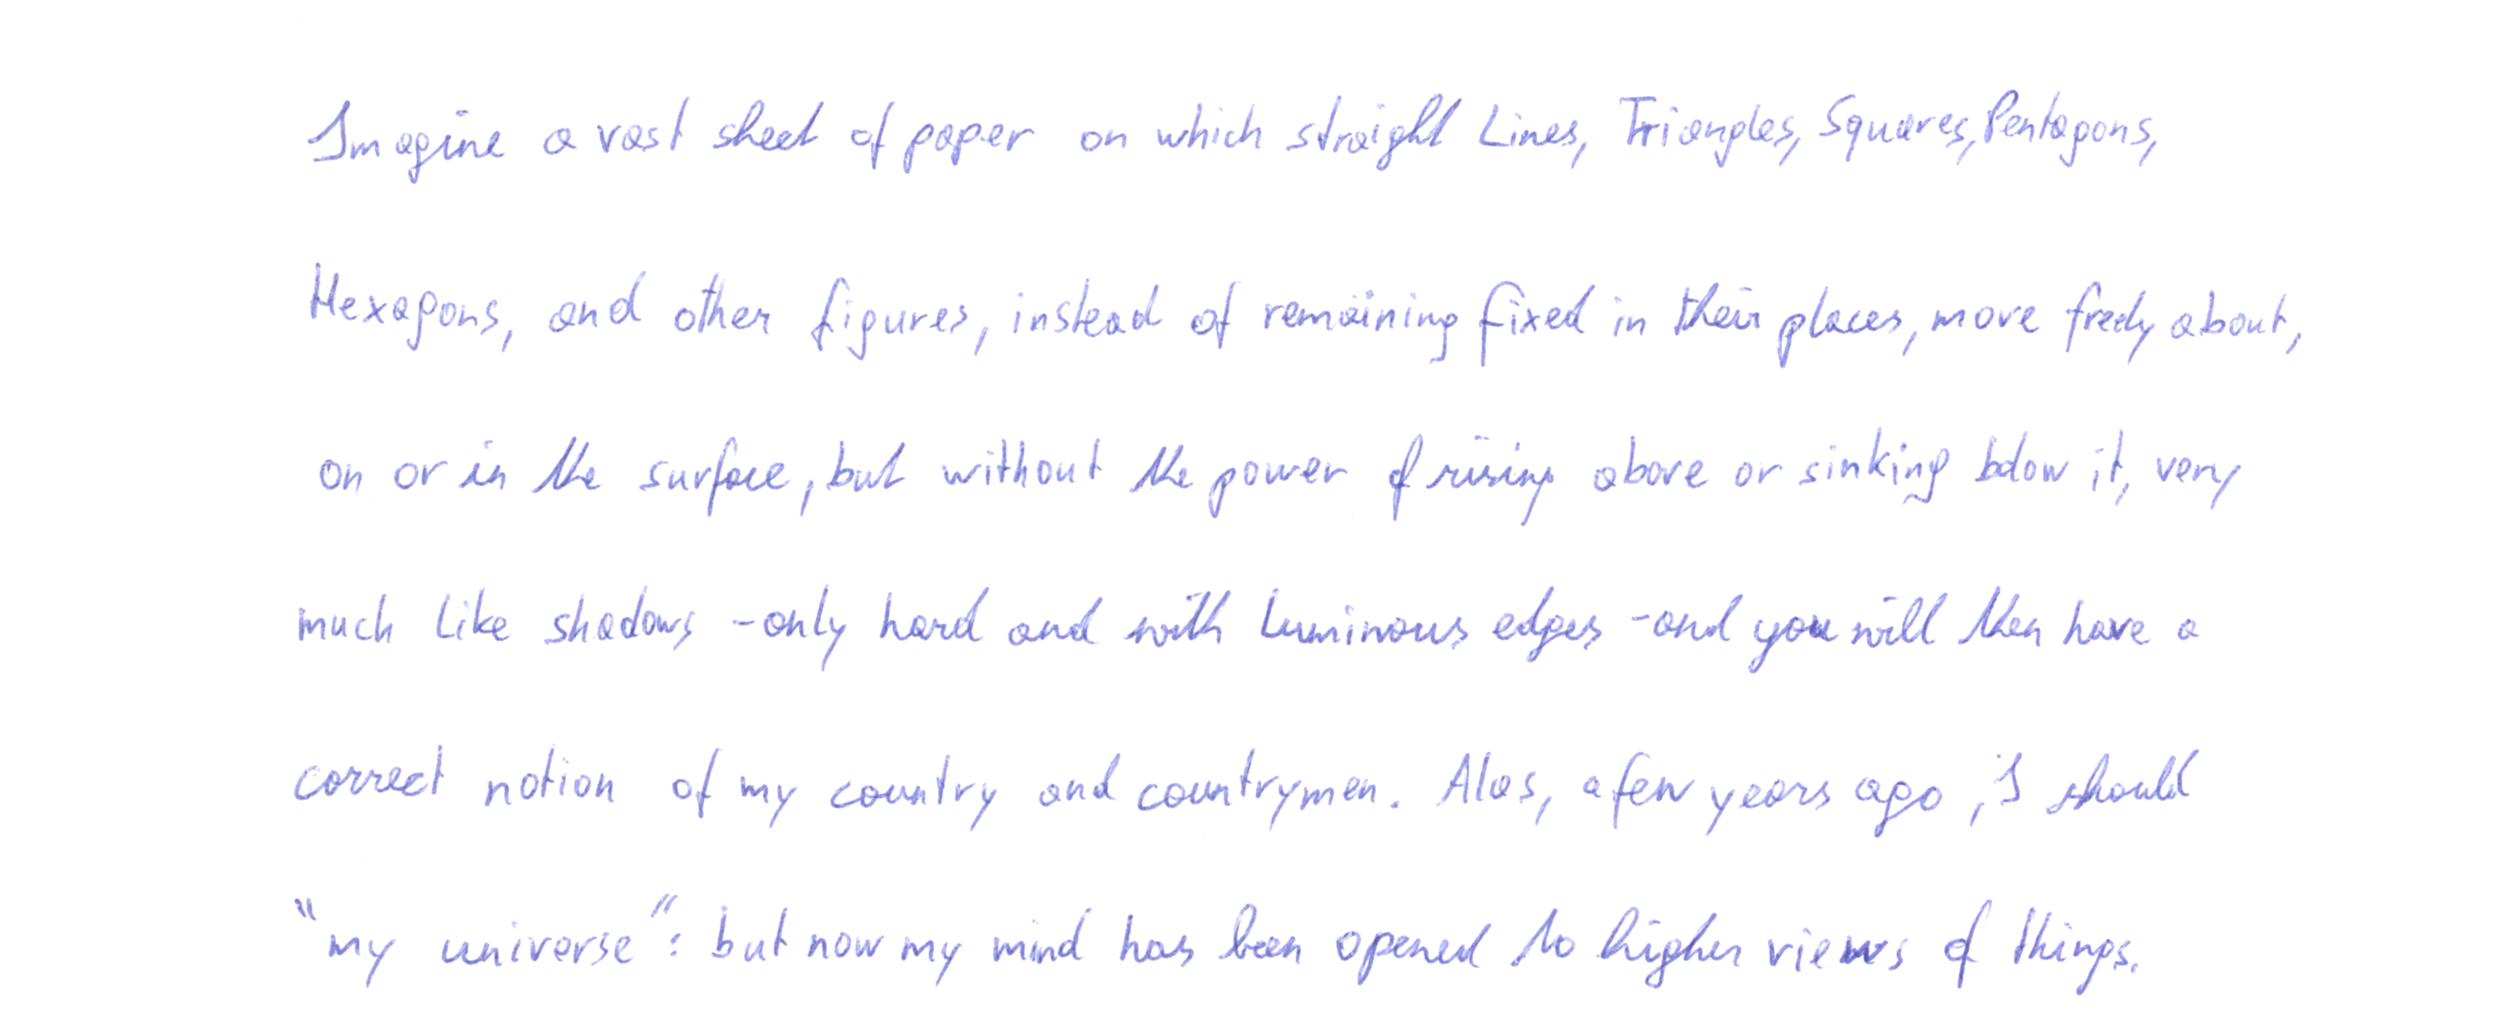 Imagine a vast sheet of paper on which straight Lines, Triangles, Squares, Pentagons,
Hexagons, and other figures, instead of remaining fixed in their places, move freely about,
on or in the surface, but without the power of rising above or sinking below it, very
much like shadows - only hard and with luminous edges - and you will then have a
correct notion of my country and countrymen. Alas, a few years ago, I should
"my universe": but now my mind has been opened to higher views of things.